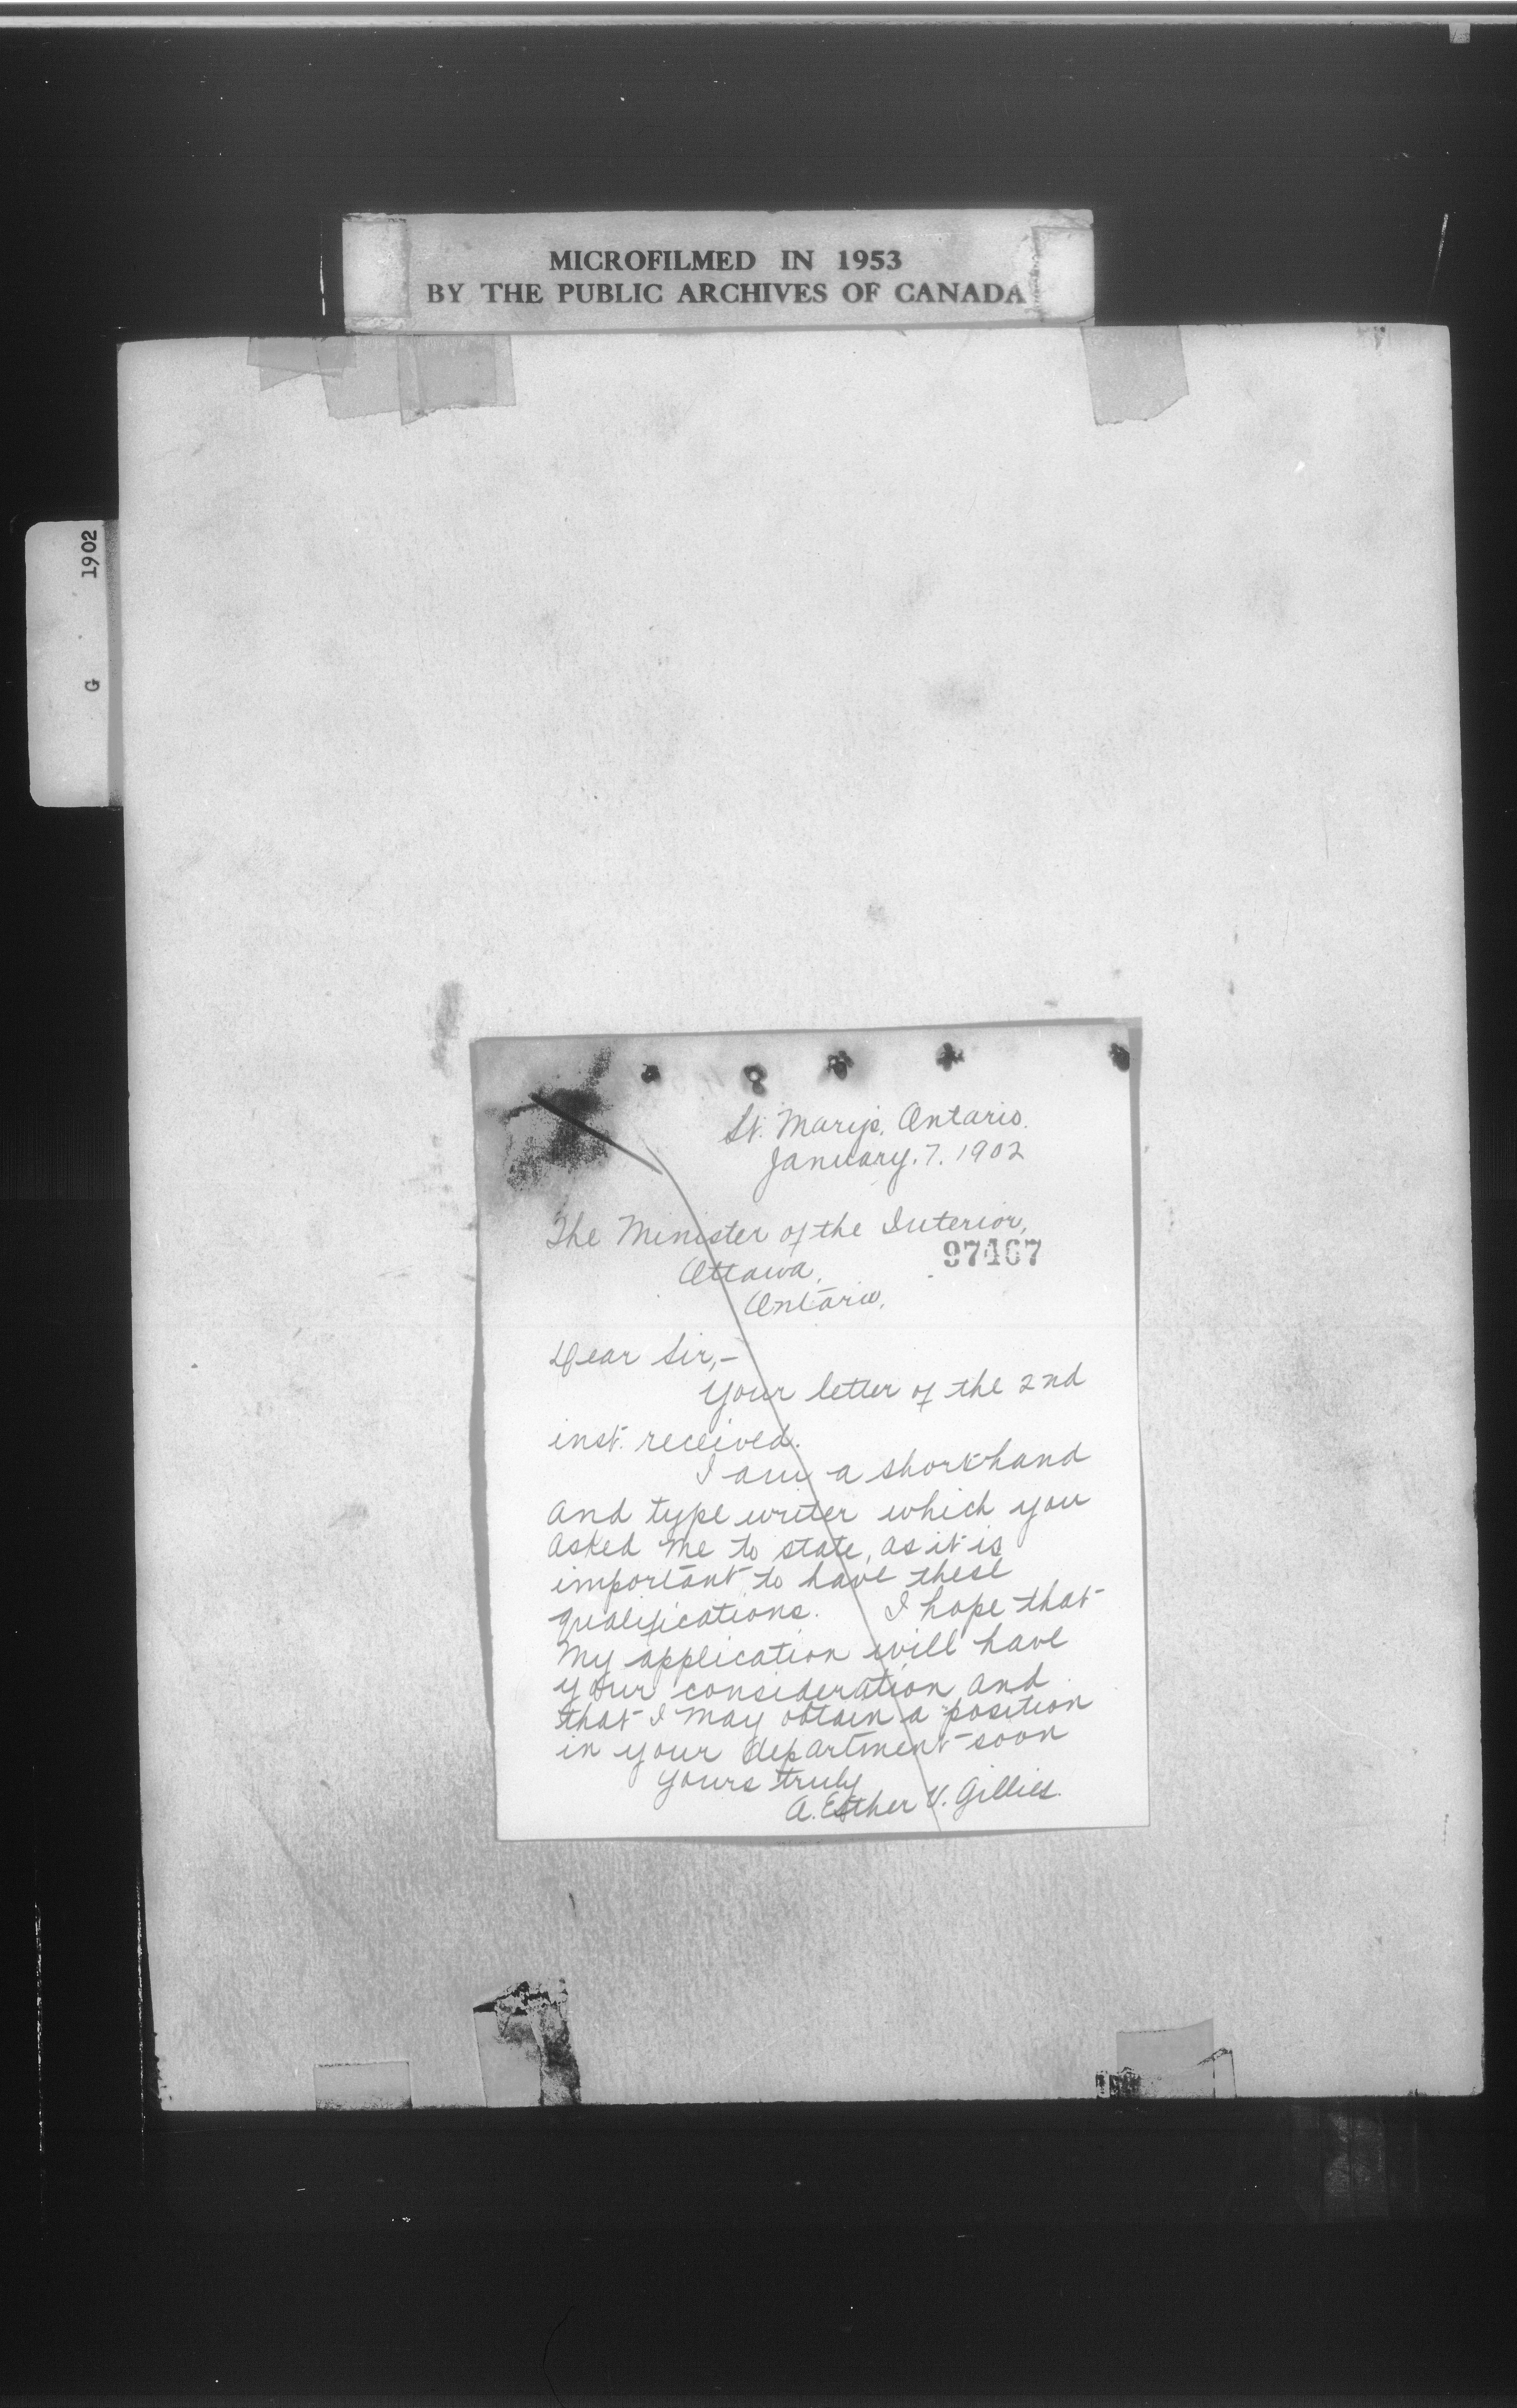 MICROFILMED IN 1953
BY THE PUBLIC ARCHIVES OF CANADA
G 1902
St. Mary's, Ontario.
January. 7. 1902
The Minister of the Interior,
97467
Ottawa,
Ontario,
Dear Sir,-
Your letter of the 2nd
inst. received.
I am a shorthand
and type writer which you
asked me to state, as it is
important to have these
qualifications. I hope that
my application will have
your consideration and
that I may obtain a position
in your department soon
yours truly
A. Esther V. Gillies.